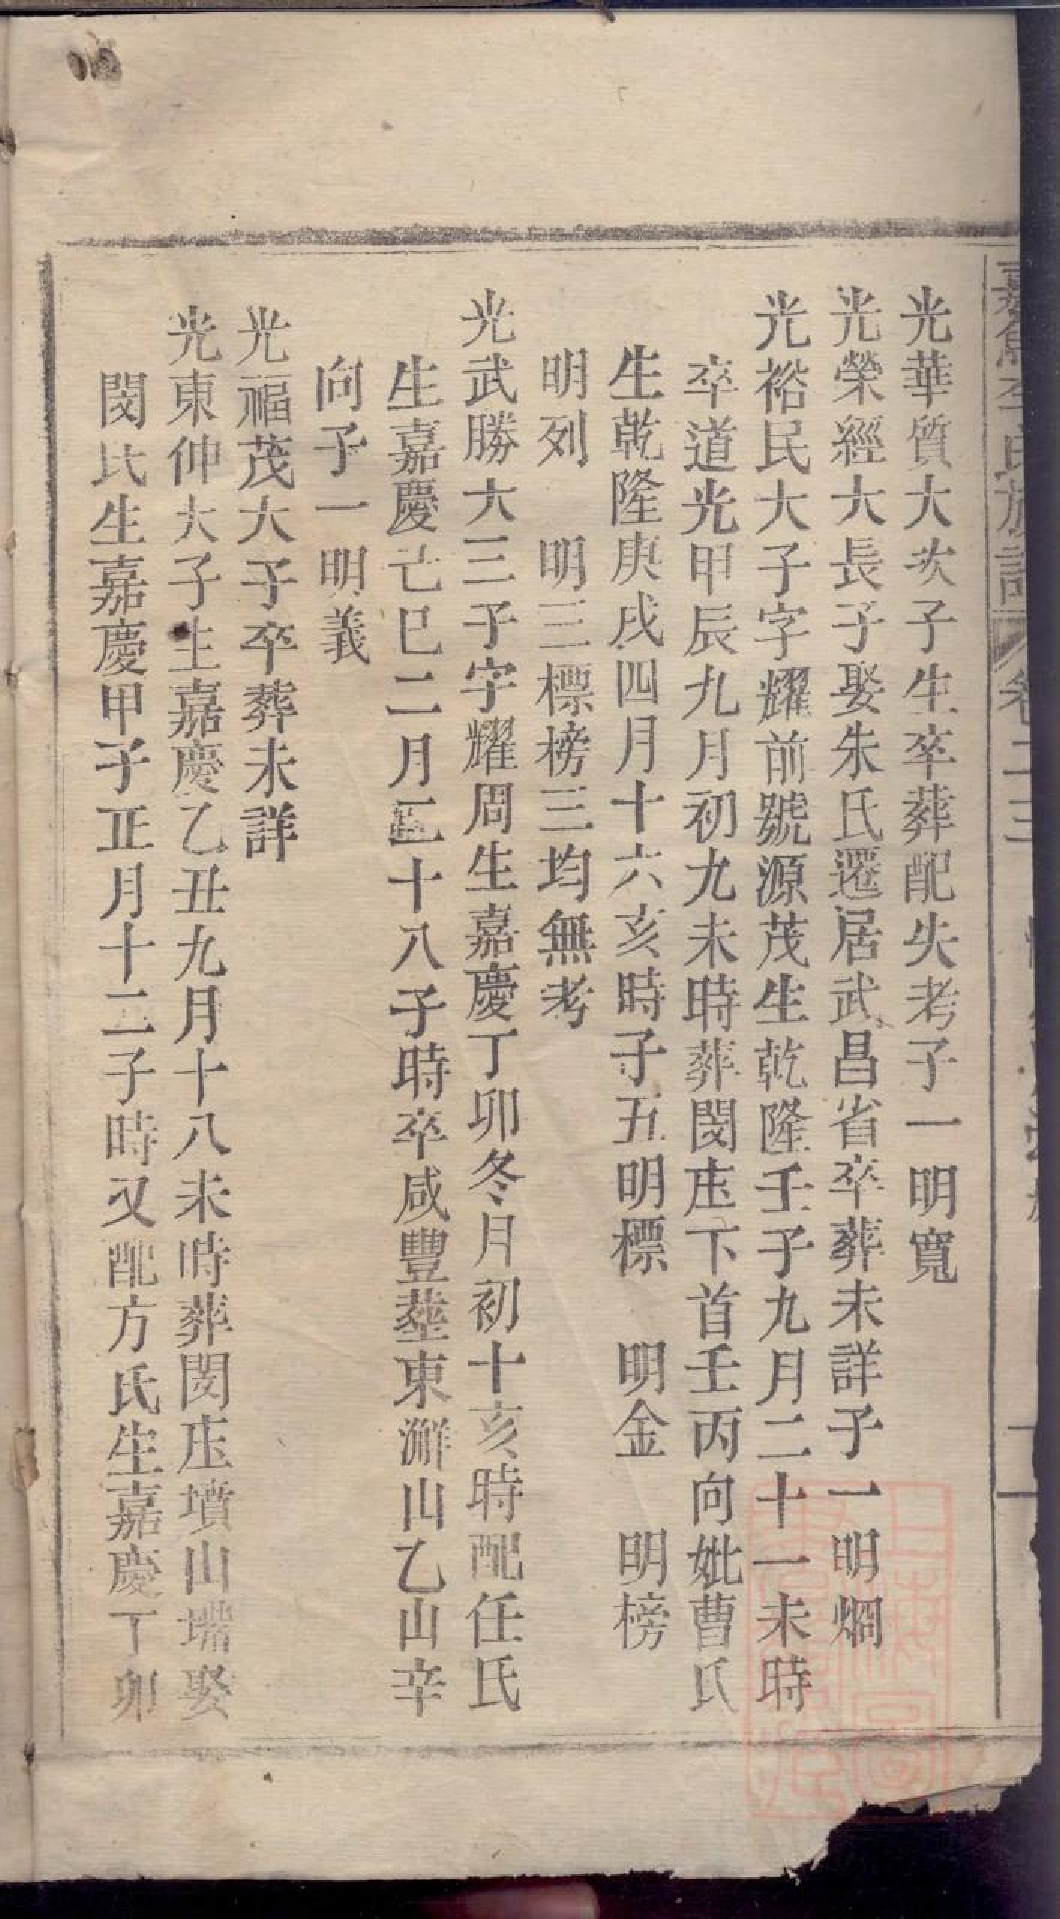 嘉魚李氏族譜 卷二三
光華質大次子生卒葬配失考子一明寬
光榮經大長子娶朱氏遷居武昌省卒葬未詳子一明烱
光裕民大子字耀前號源茂生乾隆壬子九月二十一未時
卒道光甲辰九月初九未時葬閔庄下首壬丙向妣曹氏
生乾隆庚戌四月十六亥時子五明標 明金 明榜
明列 明三標榜三均無考
光武勝大三子字耀周生嘉慶丁卯冬月初十亥時配任氏
生嘉慶己巳二月二十八子時卒咸豐塟東澥山乙山辛
向子一明義
光福茂大子卒葬未詳
光東仲大子生嘉慶乙丑九月十八未時葬閔庄墳山塝娶
閔氏生嘉慶甲子正月十二子時又配方氏生嘉慶丁卯